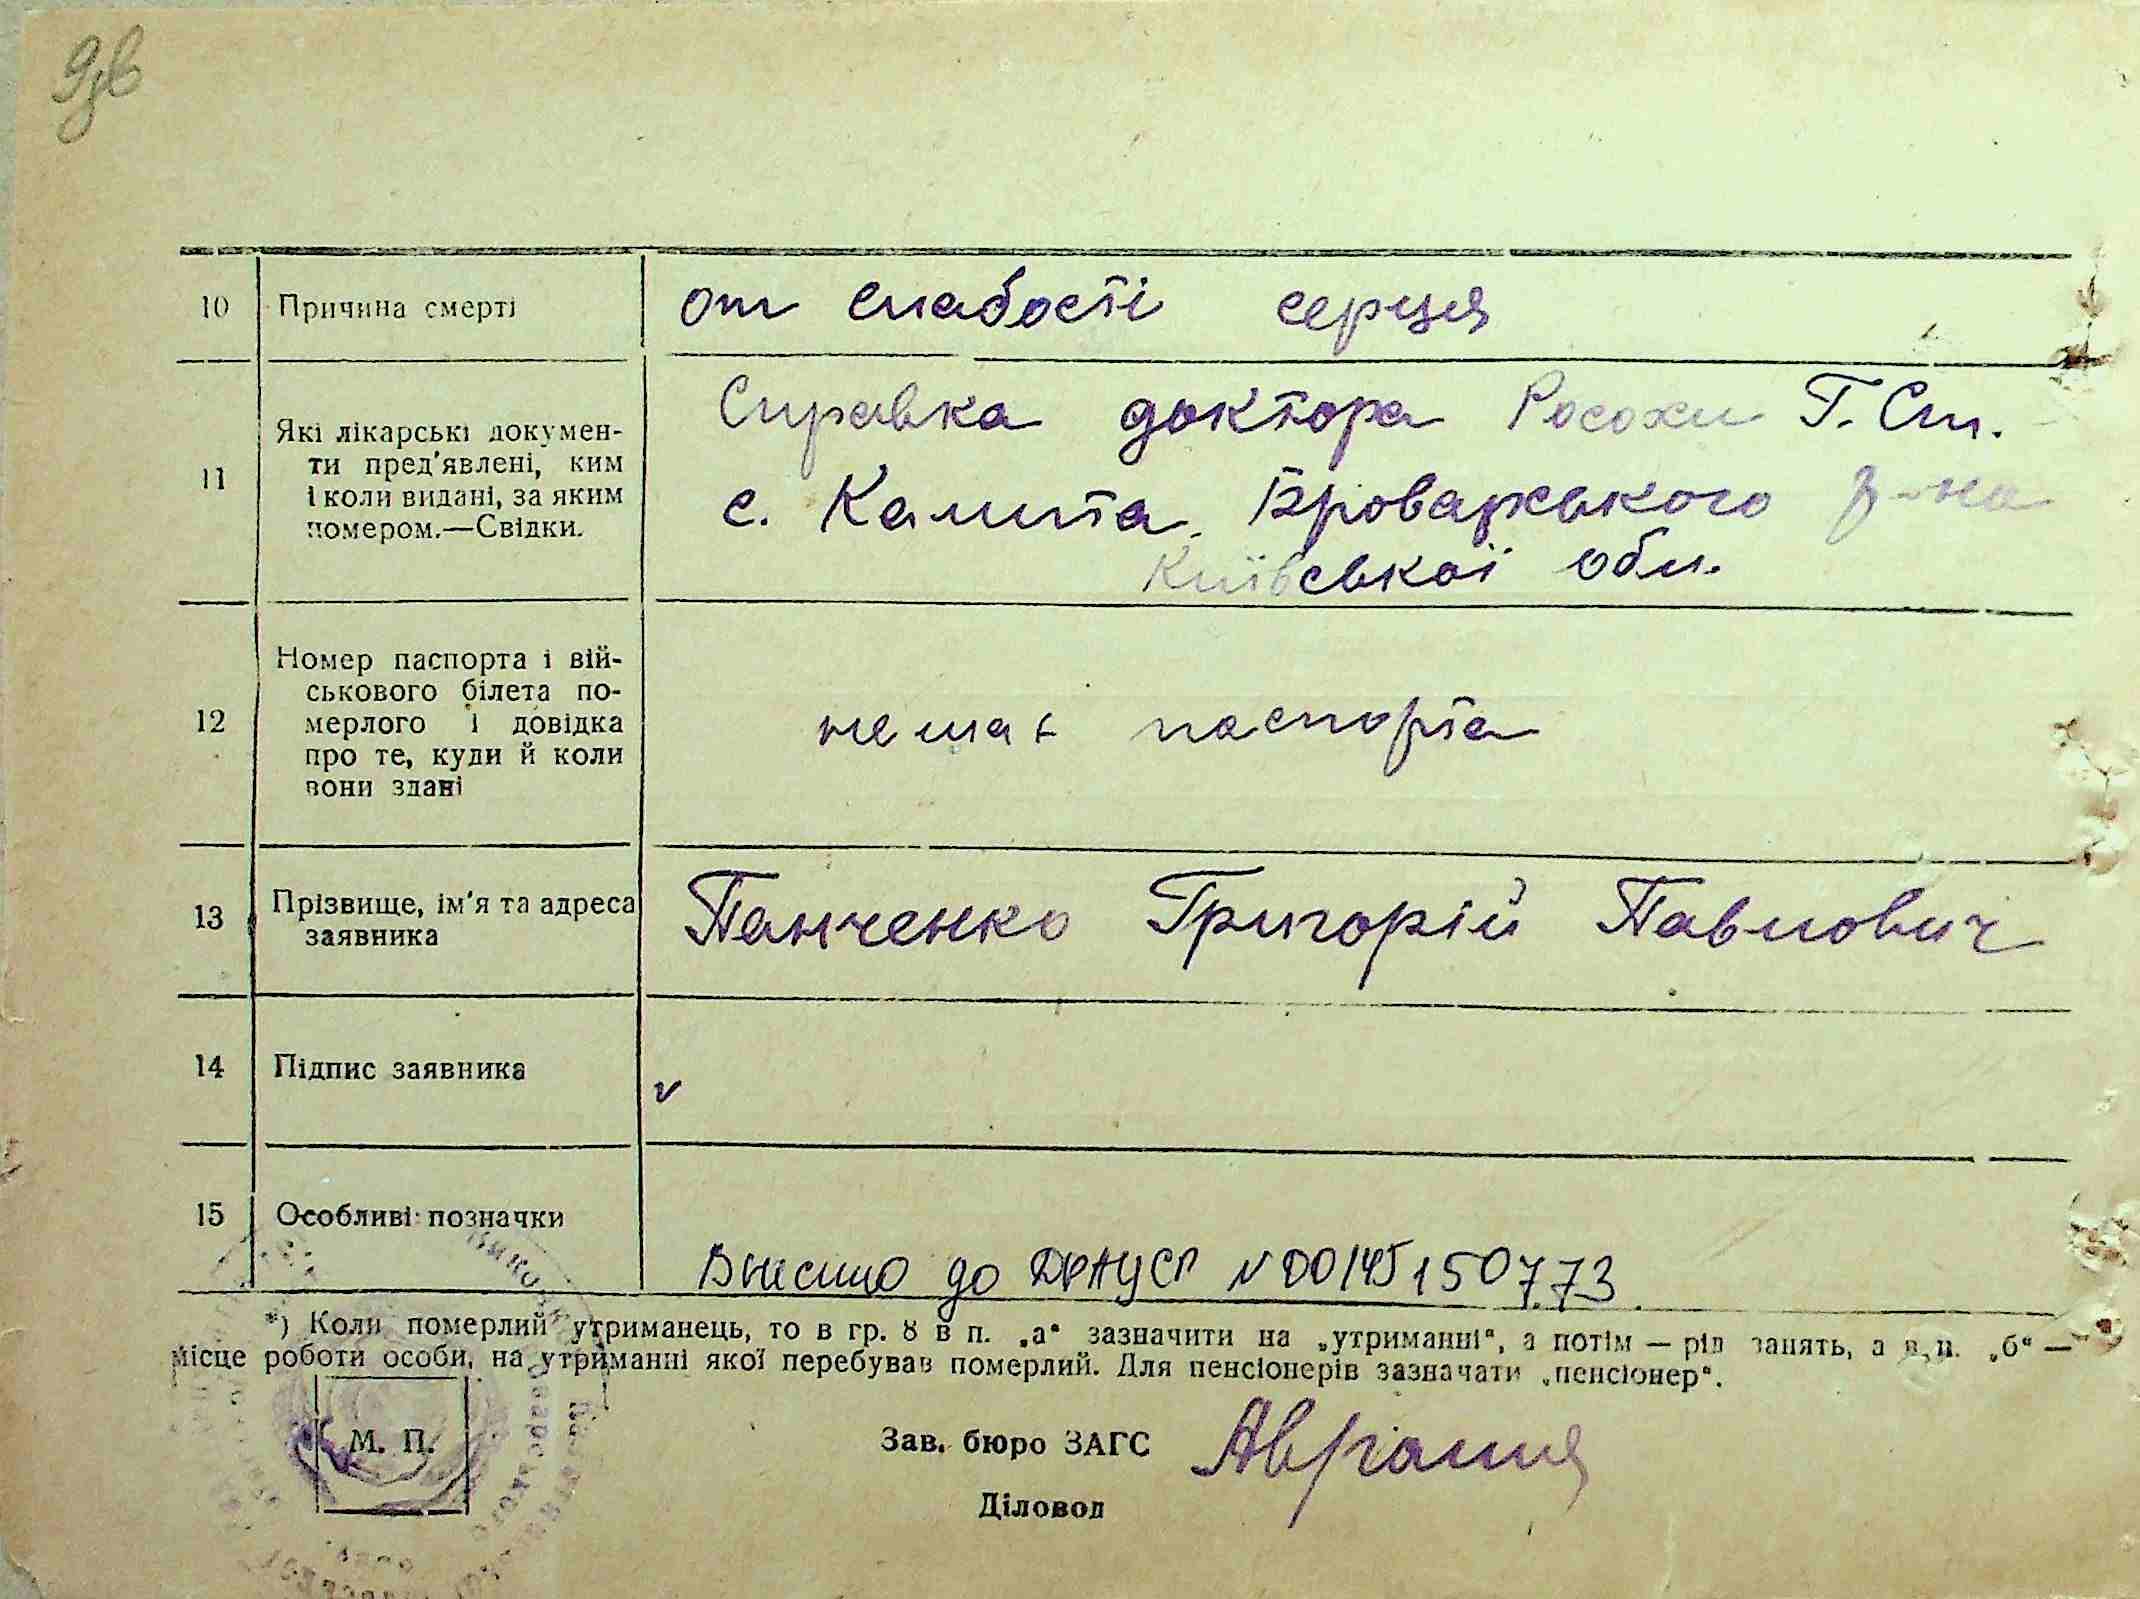 9зв
10 Причина смерті от слабості серця
11 Які лікарські докумен-
ти пред'явлені, ким
і коли видані, за яким
номером.—Свідки.
Справка доктора Росохи Г. Ст.
с. Калита, Броварського р-на
Київської обл.
12 Номер паспорта і вій-
ськового білета по-
мерлого і довідка
про те, куди й коли
вони здані
немає паспорта
13 Прізвище, ім'я та адреса
заявника
Панченко Григорій Павлович
14 Підпис заявника v
15 Особливі позначки
Внесено до ДРАЦСГ N 00145150773
*) Коли померлий утриманець, то в гр. 8 в п. „а“ зазначити на „утриманні“, а потім — рід занять, а в п. „б“ —
місце роботи особи, на утриманні якої перебував померлий. Для пенсіонерів зазначати „пенсіонер“.
М. П.
Зав. бюро ЗАГС
Діловод